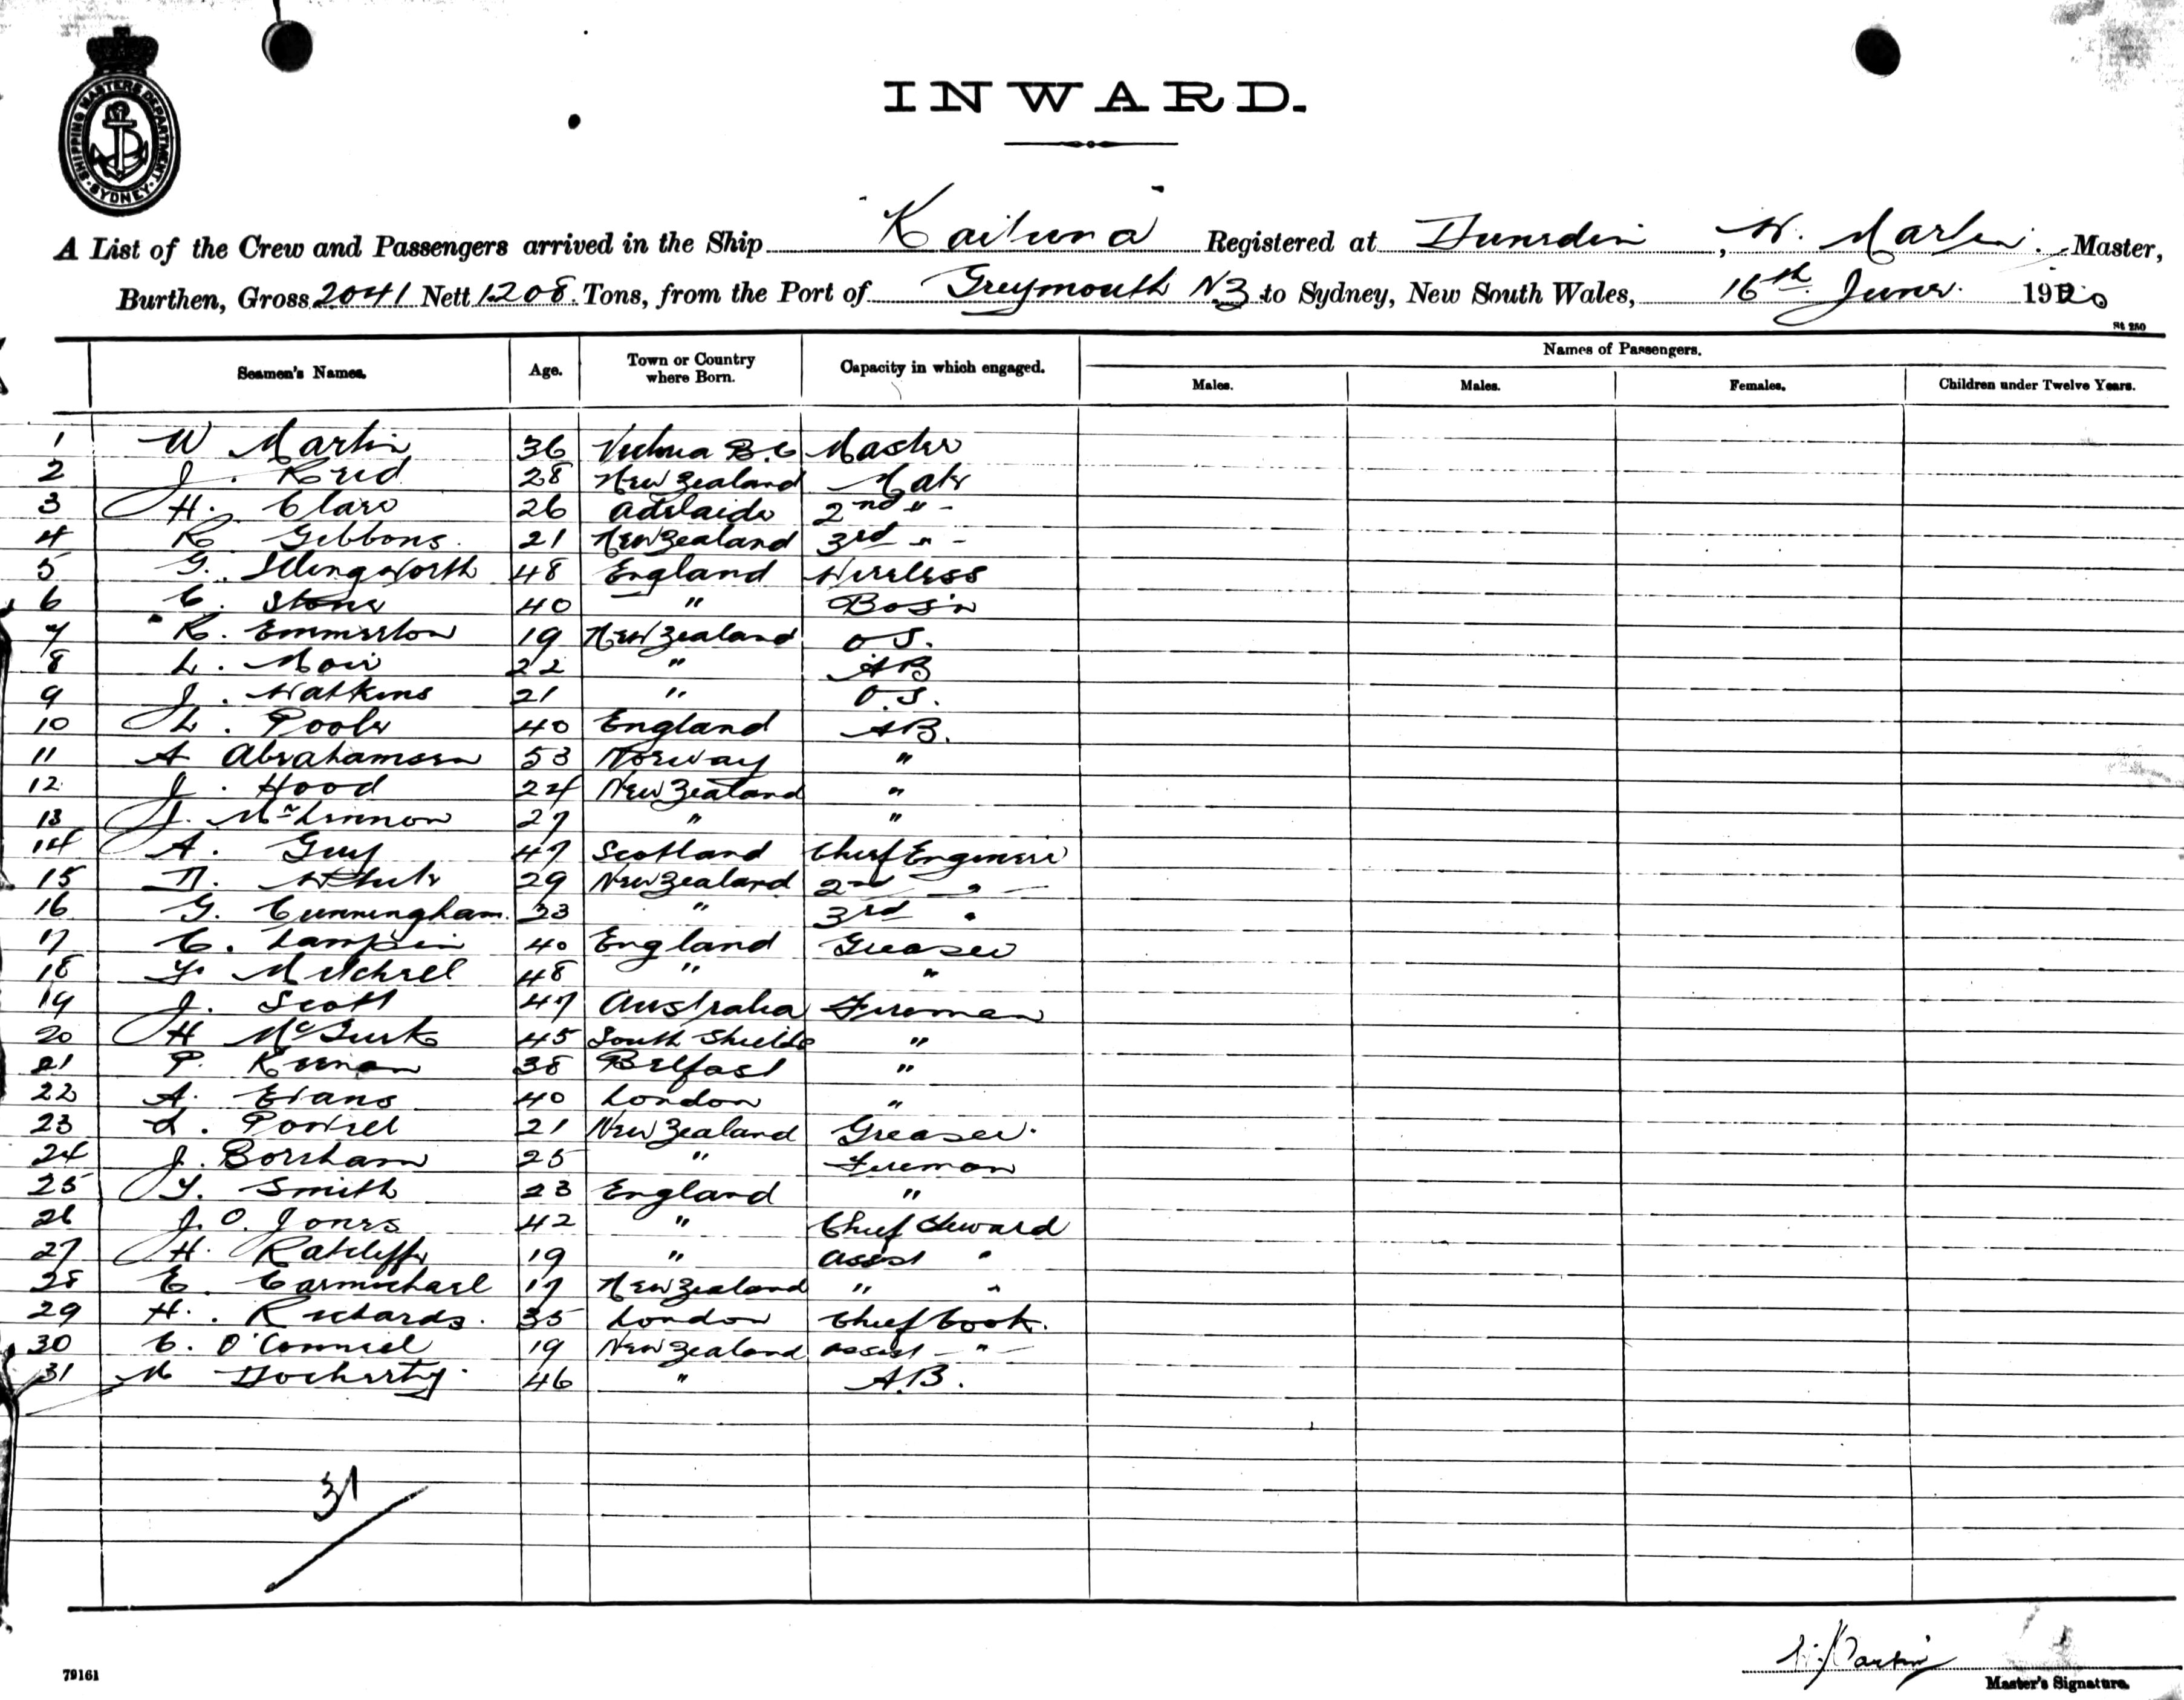 SHIPPING MASTERS DEPARTMENT. SYDNEY.
INWARD.
A List of the Crew and Passengers arrived in the Ship "Kaituna" Registered at Dunedin, W. Martin. Master,
Burthen, Gross 2041 Nett 1208. Tons, from the Port of Greymouth NZ to Sydney, New South Wales, 16th June. 1920
St 250
Seamen's Names. Age. Town or Country where Born. Capacity in which engaged. Names of Passengers.
Males. Males. Females. Children under Twelve Years.
1 W Martin 36 Victoria B.C Master
2 J. Reid 28 New Zealand Mate
3 H. Clare 26 Adelaide 2nd " -
4 R Gibbons. 21 New Zealand 3rd " -
5 G. Illingworth 48 England Wireless
6 C. Stone 40 " Bos'n
7 R. Emmerton 19 New Zealand O S.
8 L. Moir 22 " AB
9 J. Watkins 21 " O.S.
10 L. Poole 40 England AB.
11 A Abrahamsen 53 Norway "
12 J. Hood 24 New Zealand "
13 J. McLinnon 27 " "
14 A. Guy 47 Scotland Chief Engineer
15 N. White 29 New Zealand 2nd "
16 G. Cunningham. 33 " 3rd "
17 C. 40 England Greaser
18 Mitchell 48 " "
19 J. Scott 47 Australia Fireman
20 H McGurk 45 South Shields "
21 P. Keenan 38 Belfast "
22 A. Evans 40 London "
23 L. Powell 21 New Zealand Greaser.
24 J. Boreham 25 " Fireman
25 Smith 23 England "
26 J. O. Jones 42 " Chief Steward
27 H. Ratcliffe 19 " Assist "
28 E. Carmichael 17 New Zealand " "
29 H. Richards. 35 London Chief Cook.
30 C. O'Connell 19 New Zealand Assist - "
31 M Docherty. 46 " A.B.
31
W. Martin
Master's Signature.
79161